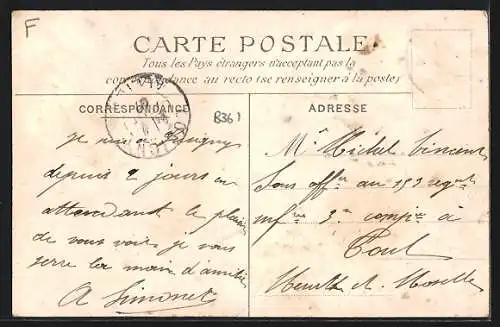 F
CARTE POSTALE
Tous les Pays étrangers n'acceptant pas la
correspondance au recto (se renseigner à la poste)
CORRESPONDANCE
8361
ADRESSE
je suis a
depuis 2 jours en
attendant le plaisir
de vous voir je vous
serre la main d'amitié
A Simonet
Mr Michel Vincent
Sous offer au 153 regnt
infrie 3e compie à
Toul
Meurthe et Moselle